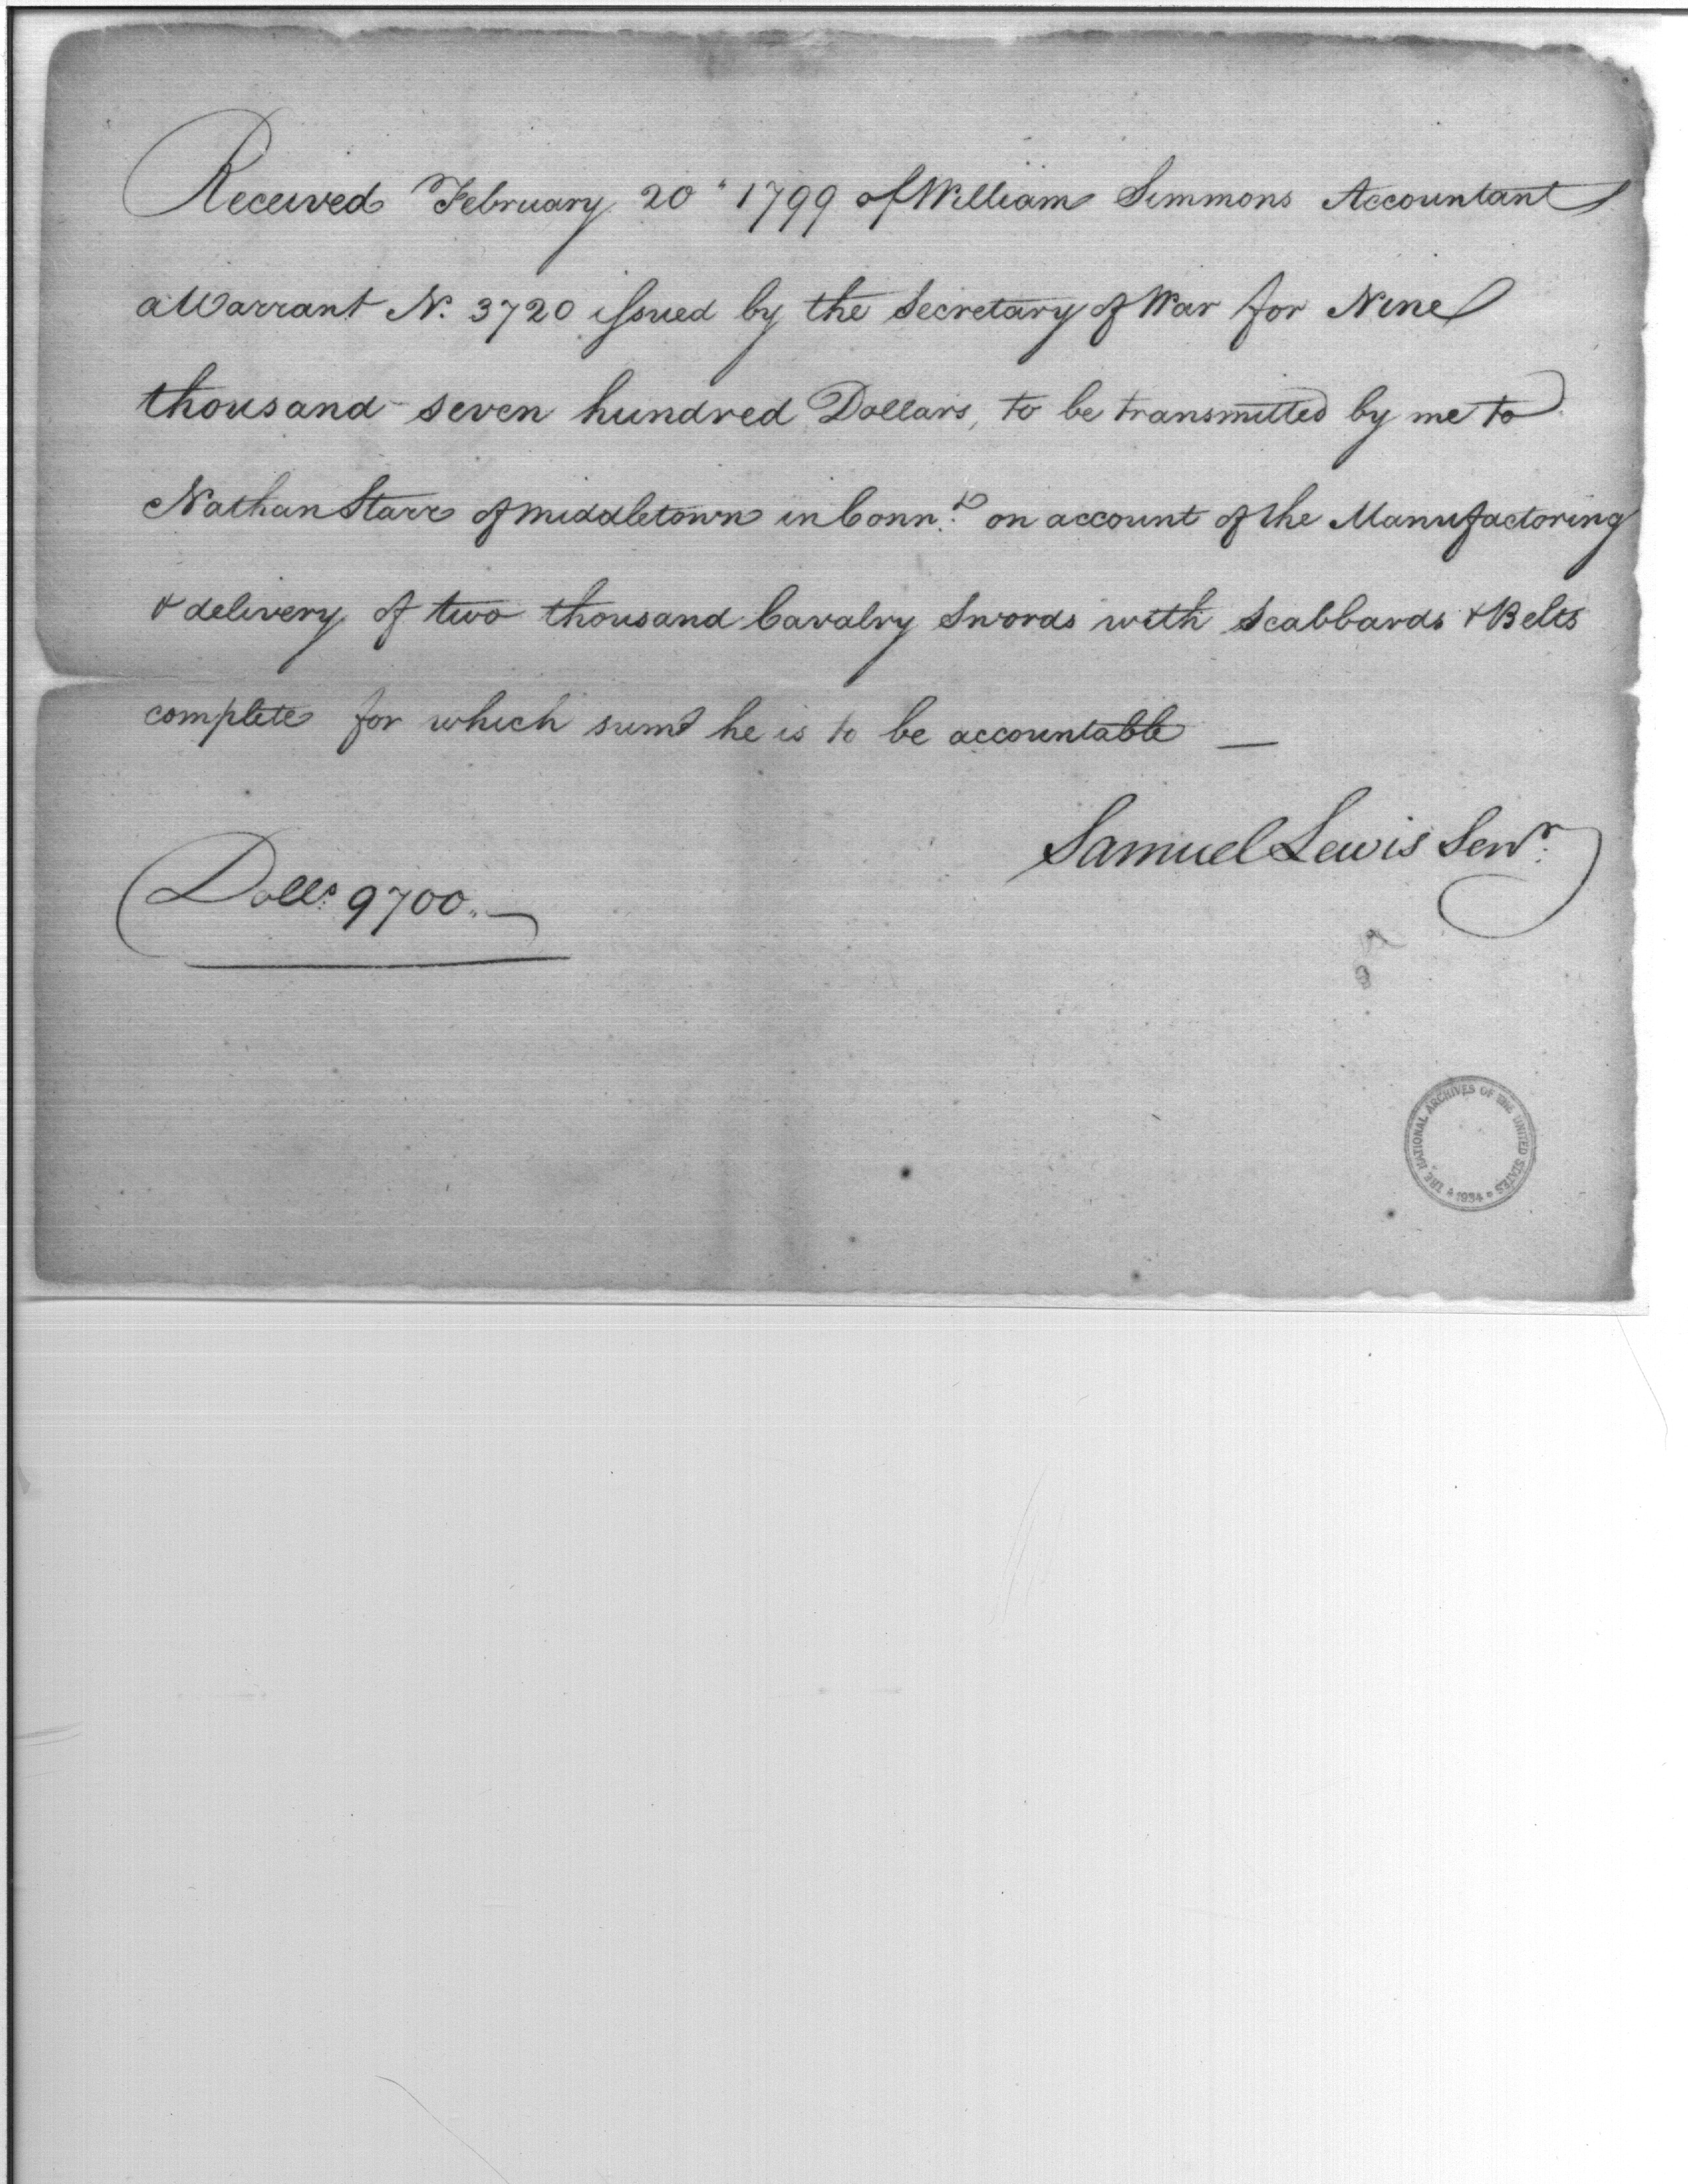 Received February 20" 1799 of William Simmons Accountant
a Warrant N. 3720 issued by the Secretary of War for Nine
thousand seven hundred Dollars, to be transmitted by me to
Nathan Starr of Middletown in Conn.t on account of the Manufactoring
& delivery of two thousand Cavalry Swords with Scabbards & Belts
complete for which sum he is to be accountable —
Samuel Lewis Senr.
Dolls. 9700..—
THE NATIONAL ARCHIVES OF THE UNITED STATES
* 1934 *